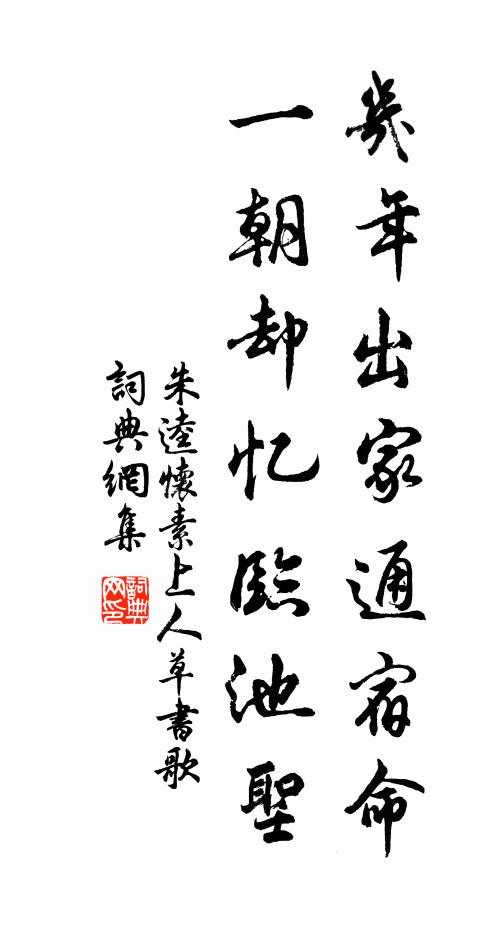 幾年出家通宿命
一朝却忆臨池聖
朱逵懷素上人草書歌
詞典網集
詞典
网印